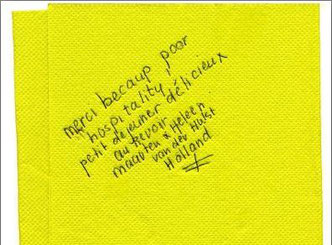 merci becaup poor
hospitality,
petit dejeuner délicieux
au revoir
maarten & Heleen
van der Hulst
Holland